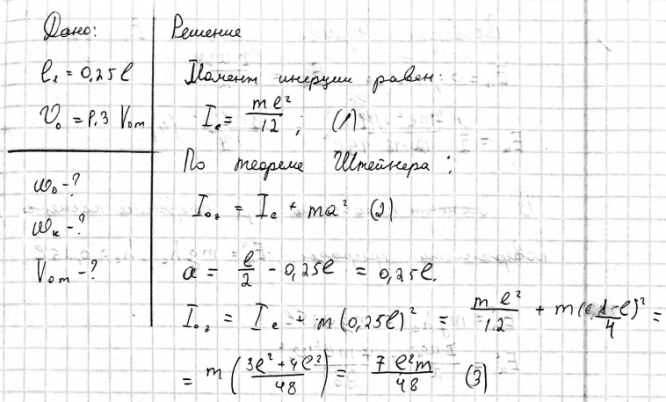 Дано:
l₁ = 0,25l
V₀ = 1.3 V₀m
ω₀ - ?
ωₖ - ?
V₀m - ?
Решение
Момент инерции равен:
I_c = ml²/12 ; (1)
По теореме Штейнера:
I₀₂ = I_c + ma² (2)
a = l/2 - 0,25l = 0,25l.
I₀₂ = I_c + m(0,25l)² = ml²/12 +
= m((3l² + 4l²)/48) = 7l²m/48 (3)